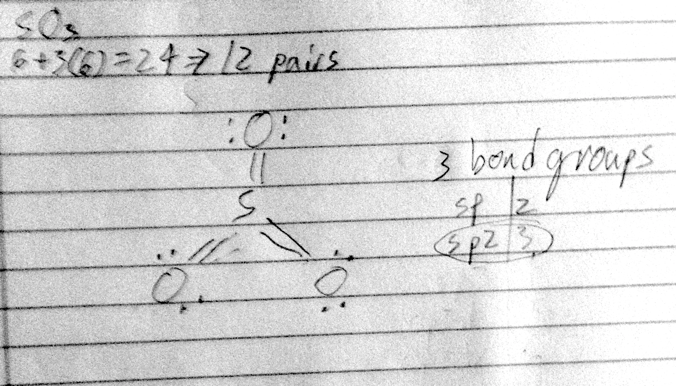 SO3
6+3(6)=24→12 pairs
:O:
||
S
O O
3 bond groups
sp | 2
sp2 | 3